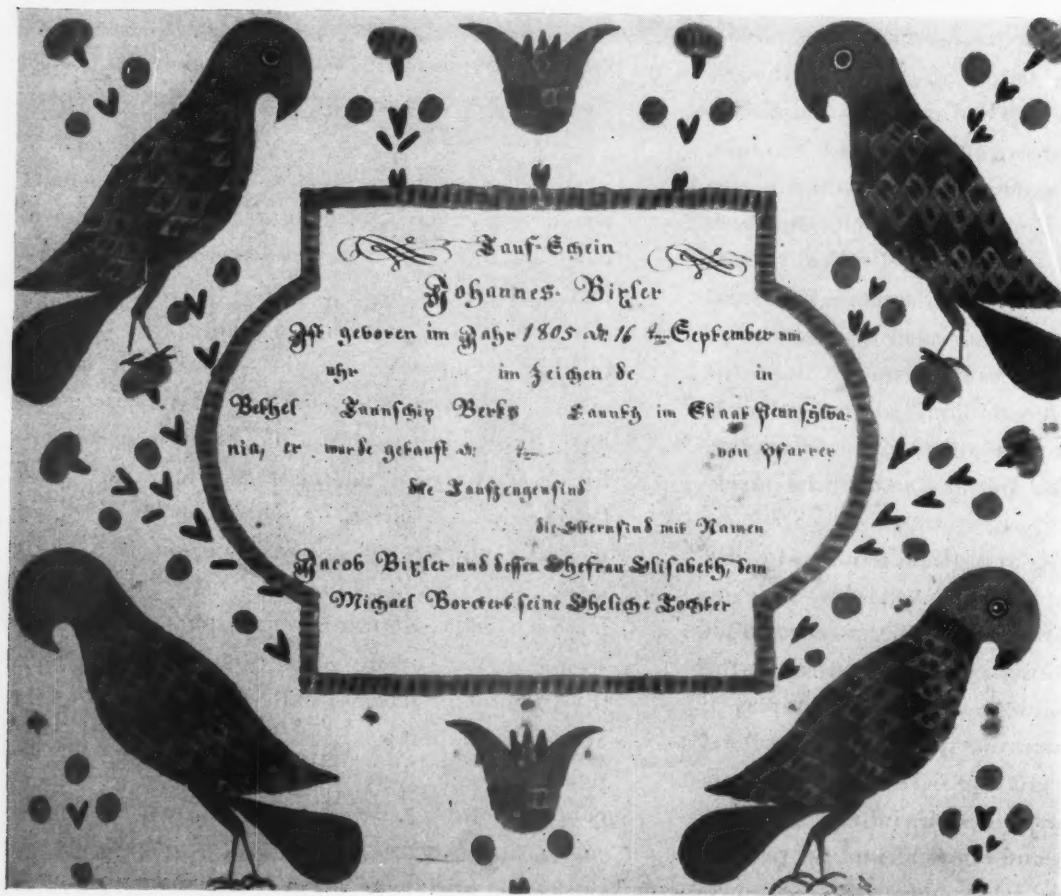 Tauf-Schein
Johannes Bixler
Ist geboren im Jahr 1805 d: 16 ten September um
uhr im Zeichen de in
Bethel Taunschip Berks Caunty im Staat Pennsylva-
nia, er wurde getauft d: ten von Pfarrer
die Taufzeugen sind
die Eltern sind mit Namen
Jacob Bixler und dessen Ehefrau Elisabeth, dem
Michael Borckert seine Eheliche Tochter